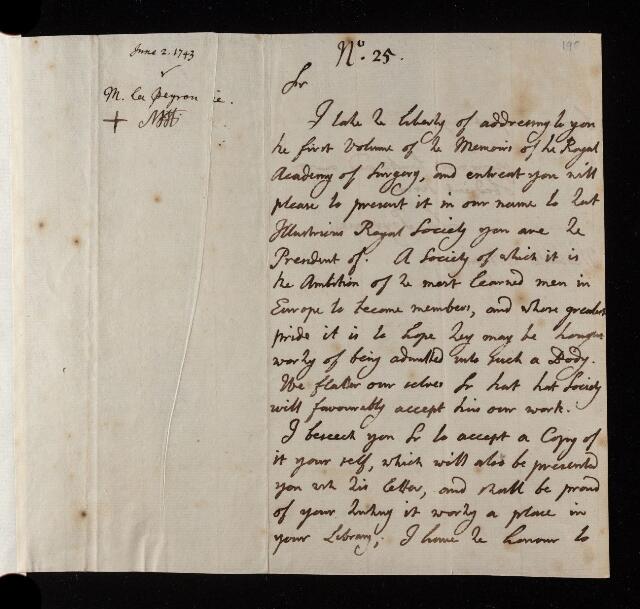 June 2. 1743
M. la Peyronie.
No. 25.
190
Sr
I take the liberty of addressing to you
the first Volume of the Memoirs of the Royal
Academy of Surgery, and entreat you will
please to present it in our name to that
Illustrious Royal Society you are the
President of. A Society of which it is
the Ambition of the most learned men in
Europe to become members, and whose greatest
pride it is to hope they may be thought
worthy of being admitted into such a Body.
We flatter our selves Sr that that Society
will favourably accept this our work.
I beseech you Sr to accept a Copy of
it your self, which will also be presented
you wth this letter, and shall be proud
of your thinking it worthy a place in
your Library; I have the honour to